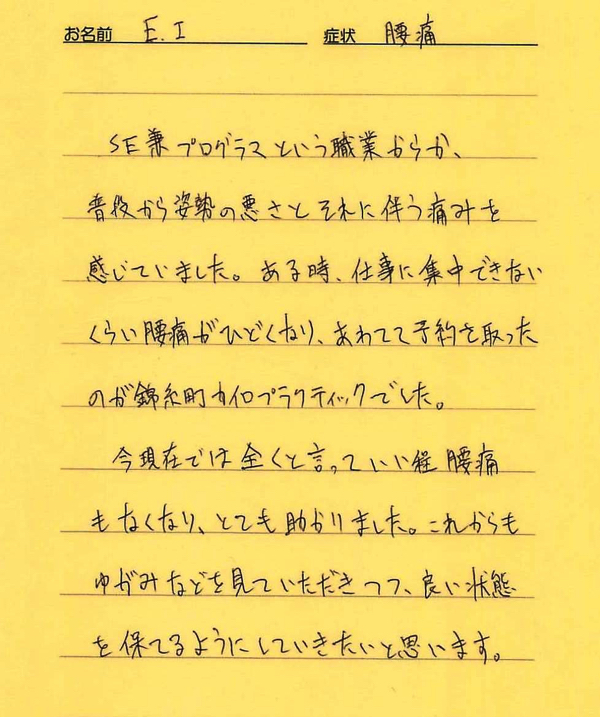 お名前 E.I 症状 腰痛
SE兼プログラマという職業からか、
普段から姿勢の悪さとそれに伴う痛みを
感じていました。ある時、仕事に集中できない
くらい腰痛がひどくなり、あわてて予約を取った
のが錦糸町カイロプラクティックでした。
今現在では全くと言っていい程腰痛
もなくなり、とても助かりました。これからも
ゆがみなどを見ていただきつつ、良い状態
を保てるようにしていきたいと思います。